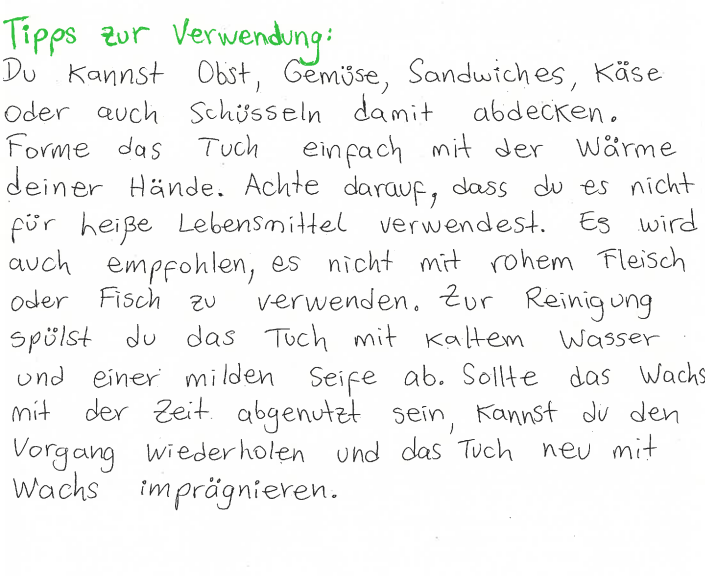 Tipps zur Verwendung:
Du kannst Obst, Gemüse, Sandwiches, Käse
oder auch Schüsseln damit abdecken.
Forme das Tuch einfach mit der Wärme
deiner Hände. Achte darauf, dass du es nicht
für heiße Lebensmittel verwendest. Es wird
auch empfohlen, es nicht mit rohem Fleisch
oder Fisch zu verwenden. Zur Reinigung
spülst du das Tuch mit kaltem Wasser
und einer milden Seife ab. Sollte das Wachs
mit der Zeit abgenutzt sein, kannst du den
Vorgang wiederholen und das Tuch neu mit
Wachs imprägnieren.